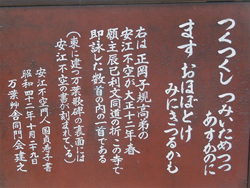 つくつくし つみいためつつ
あすかのに
ます おほほとけ
みにきつるかも
右は正岡子規高弟の
安江不空が大正十二年春
願主辰巳利文同道の折 この寺で
即詠した数首の内の一首である
(東に建つ万葉歌碑の裏面には
安江不空の書が刻まれている)
安江不空門人 園貞寿子書
昭和四十二年十月二十九日
万葉艸舎同門会建之